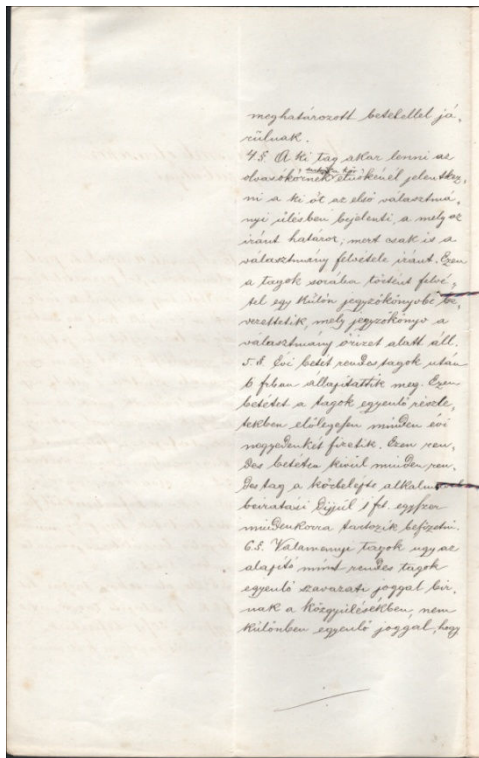 meghatározott betétellel já,
rúlnak.
4 §. A ki tag akar lenni az
olvasókörnek elnökénél jelentkez,
ni a ki öt az elsö választmá,
nyi ülésben bejelenti, a mely az
iránt határoz; mert csak is a
választmány felvétele iránt. Ezen
a tagok sorába történt felvé,
tel egy külön jegyzökönyvbe be,
vezettetik, mely jegyzökönyv a
választmány örizet alatt áll.
5. §. Évi betét rendes tagok után
6 frban állapitattik meg. Ezen
betétet a tagok egyenlö részle,
tekben elölegesen minden évi
negyedenkét fizetik. Ezen ren,
des betéten kivül minden ren,
des tag a
beiratási dijjúl 1 frt egyszer
mindenkorra tartozik befizetni.
6. §. Valamenyi tagok ugy az
alapitó mint rendes tagok
egyenlö szavazati joggal bir,
nak a közgyülésekben, nem
különben egyenlö joggal, hogy